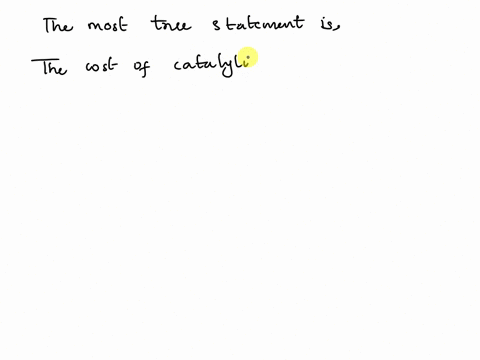 The most true statement is,
The cost of catalyli